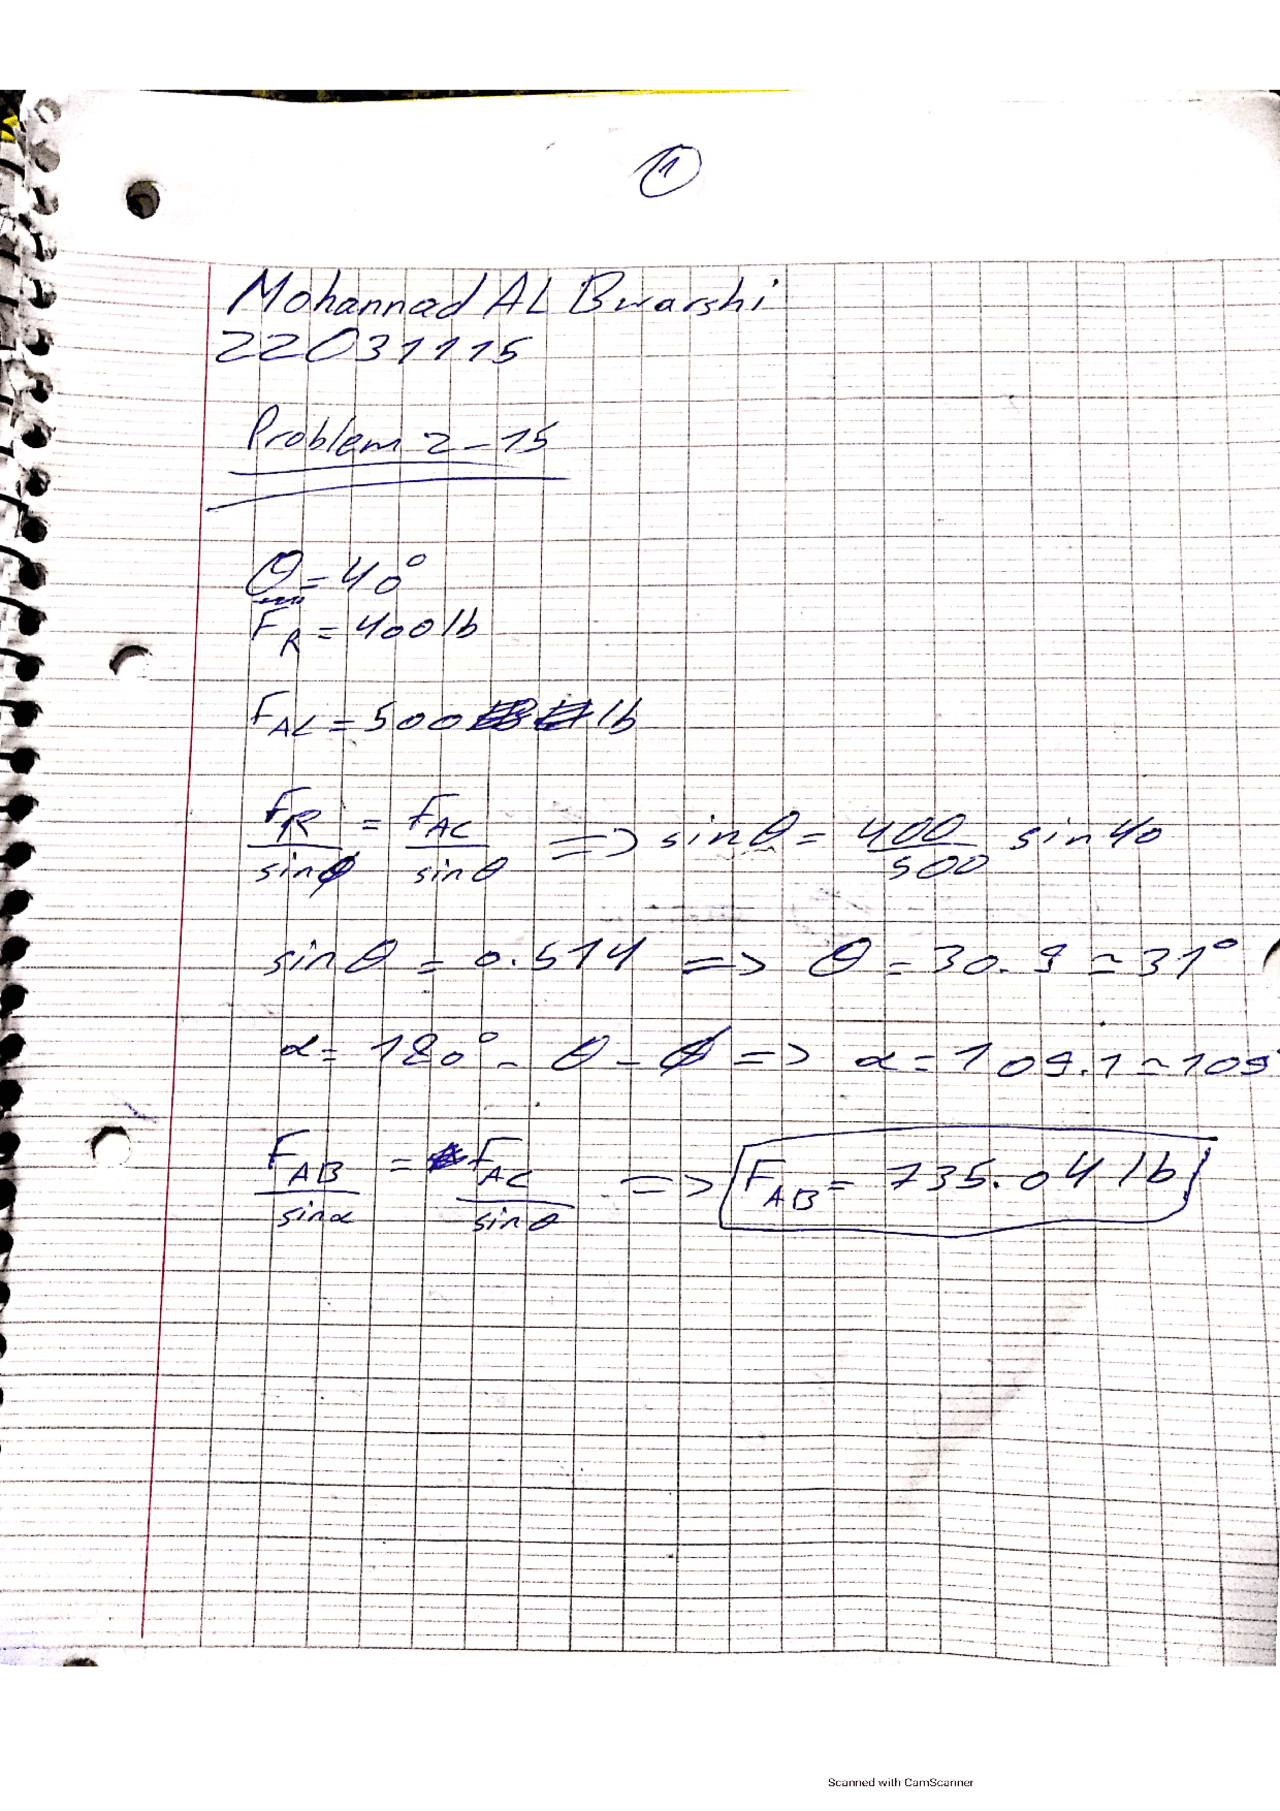 1
Mohannad AL Bwarshi
22031115
Problem 2-15
θ = 40°
F_R = 400 lb
F_AC = 500 lb
F_R / sin ϕ = F_AC / sin θ => sin θ = 400/500 sin 40
sin θ = 0.514 => θ = 30.9 ≃ 31°
α = 180° - θ - ϕ => α = 109.1 ≃ 109°
F_AB / sin α = F_AC / sin θ => F_AB = 735.04 lb
Scanned with CamScanner